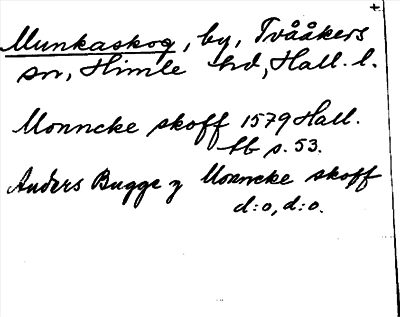 +
Munkaskog, by, Tvååkers
sn, Himle hd, Hall. l.
Monncke skoff 1579 Hall.
tb s. 53.
Anders Bugge y Monncke skoff
d:o, d:o.